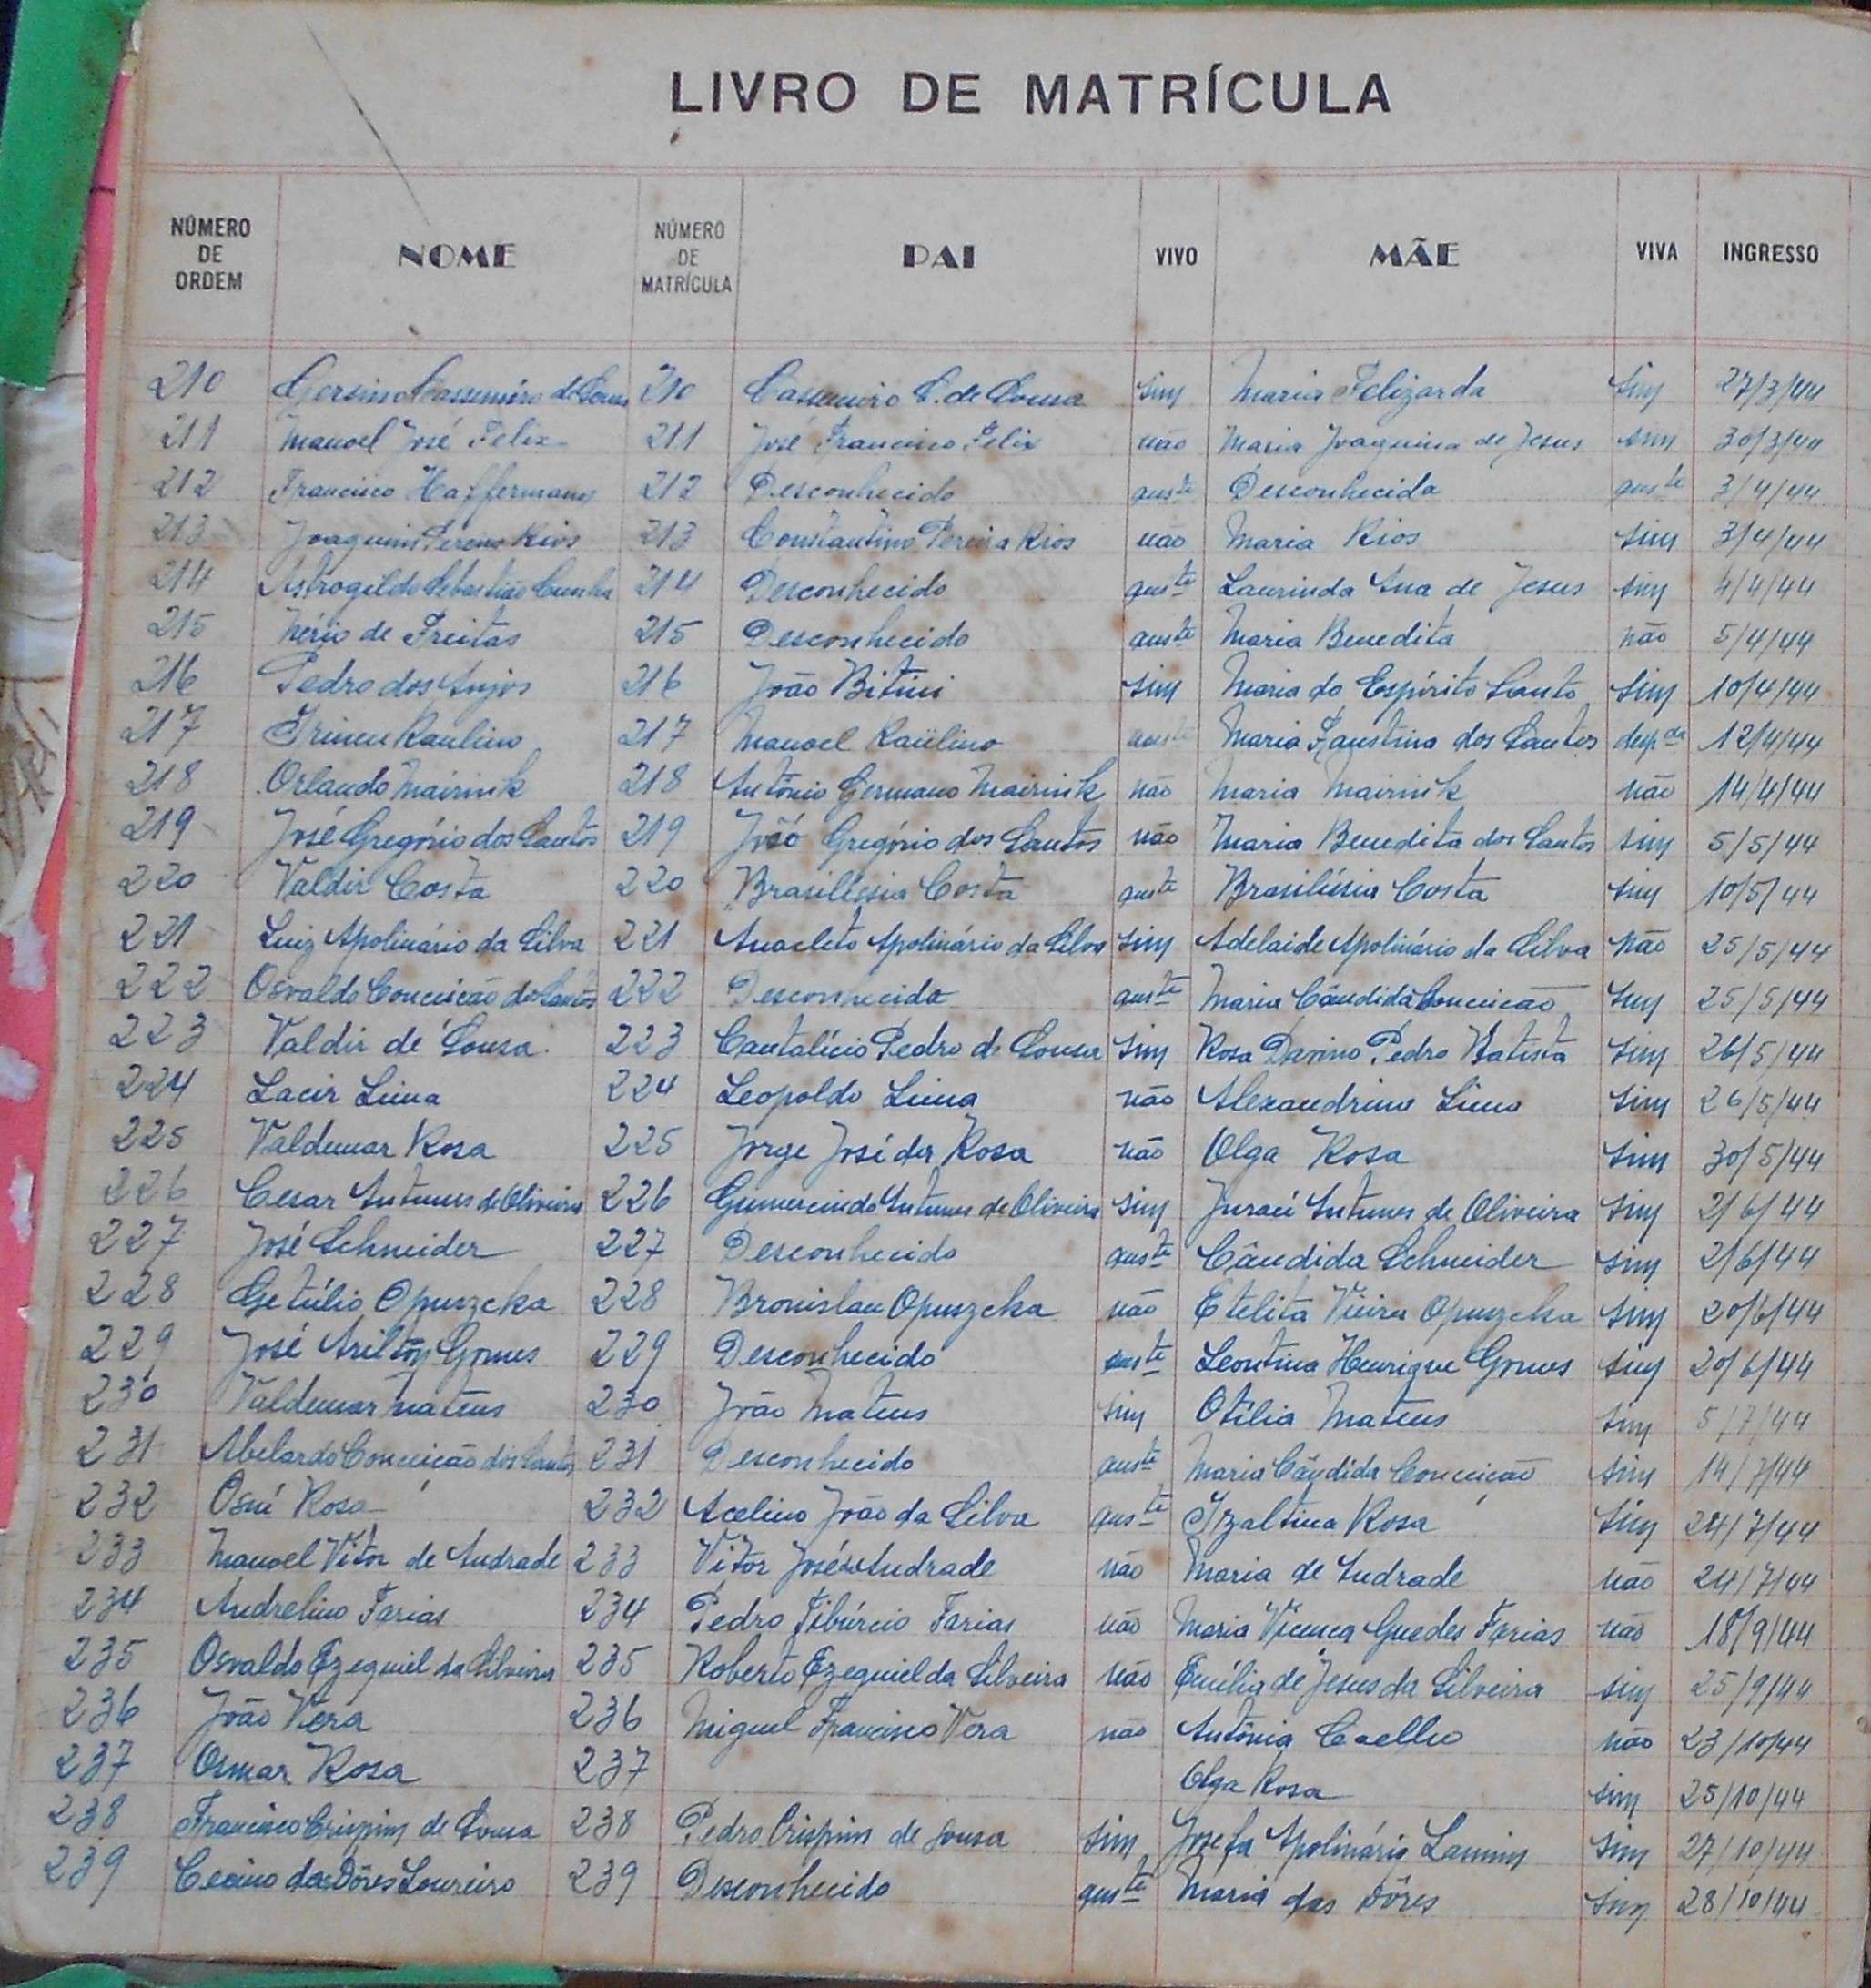 LIVRO DE MATRÍCULA
NÚMERO DE ORDEM NOME NÚMERO DE MATRÍCULA PAI VIVO MÃE VIVA INGRESSO
210 Gersino Cassemiro de Sousa 210 Cassemiro C. de Sousa sim Maria Felizarda sim 27/3/44
211 Manoel José Felix 211 José Francisco Felix não Maria Joaquina de Jesus sim 30/3/44
212 Francisco Haffermann 212 Desconhecido auste Desconhecida auste 3/4/44
213 Joaquim Pereira Rios 213 Constantino Pereira Rios não Maria Rios sim 3/4/44
214 Astrogildo Sebastião Cunha 214 Desconhecido auste Laurinda Ana de Jesus sim 4/4/44
215 Nério de Freitas 215 Desconhecido auste Maria Benedita não 5/4/44
216 Pedro dos Anjos 216 João Bitini sim Maria do Espírito Santo sim 10/4/44
217 Irineu Raulino 217 Manoel Raülino auste Maria Faustina dos Santos desp da 12/4/44
218 Orlando Mairink 218 Antônio Germano Mairink não Maria Mairink não 14/4/44
219 José Gregório dos Santos 219 Gregório dos Santos não Maria Benedita dos Santos sim 5/5/44
220 Valdir Costa 220 Costa auste Costa sim 10/5/44
221 Luiz Apolinário da Silva 221 Anacleto Apolinário da Silva sim Adelaide Apolinário da Silva não 25/5/44
222 Osvaldo Conceição dos Santos 222 Desconhecido auste Maria Cândida Conceição sim 25/5/44
223 Valdir de Sousa. 223 Cantalício Pedro de Sousa sim Rosa Davino Pedro Batista sim 26/5/44
224 Lacir Lima 224 Leopoldo Lima não Alexandrina Lima sim 26/5/44
225 Valdemar Rosa 225 Jorge José da Rosa não Olga Rosa sim 30/5/44
226 Cesar Antunes de Oliveira 226 Gumercindo Antunes de Oliveira sim Juraci Antunes de Oliveira sim 2/6/44
227 José Schneider 227 Desconhecido auste Cândida Schneider sim 2/6/44
228 Getúlio Opuszcka 228 Bronislau Opuszcka não Etelita Vieira Opuszcka sim 20/6/44
229 José Arilton Gomes 229 Desconhecido auste Leontina Henrique Gomes sim 20/6/44
230 Valdemar Mateus 230 João Mateus sim Otília Mateus sim 5/7/44
231 Abelardo Conceição dos Santos 231 Desconhecido auste Maria Cândida Conceição sim 14/7/44
232 Osní Rosa 232 Acelino João da Silva auste Izaltina Rosa sim 24/7/44
233 Manoel Vitor de Andrade 233 Vitor José de Andrade não Maria de Andrade não 24/7/44
234 Andrelino Farias 234 Pedro Tibúrcio Farias não Maria Vicença Guedes Farias não 18/9/44
235 Osvaldo Ezequiel da Silveira 235 Roberto Ezequiel da Silveira não Emília de Jesus da Silveira sim 25/9/44
236 João Vera 236 Miguel Francisco Vera não Antônia Coelho não 23/10/44
237 Osmar Rosa 237 Olga Rosa sim 25/10/44
238 Francisco Crispim de Sousa 238 Pedro Crispim de Sousa sim Josefa Apolinária Lamim sim 27/10/44
239 das Dôres Loureiro 239 Desconhecido auste Maria das Dôres sim 28/10/44